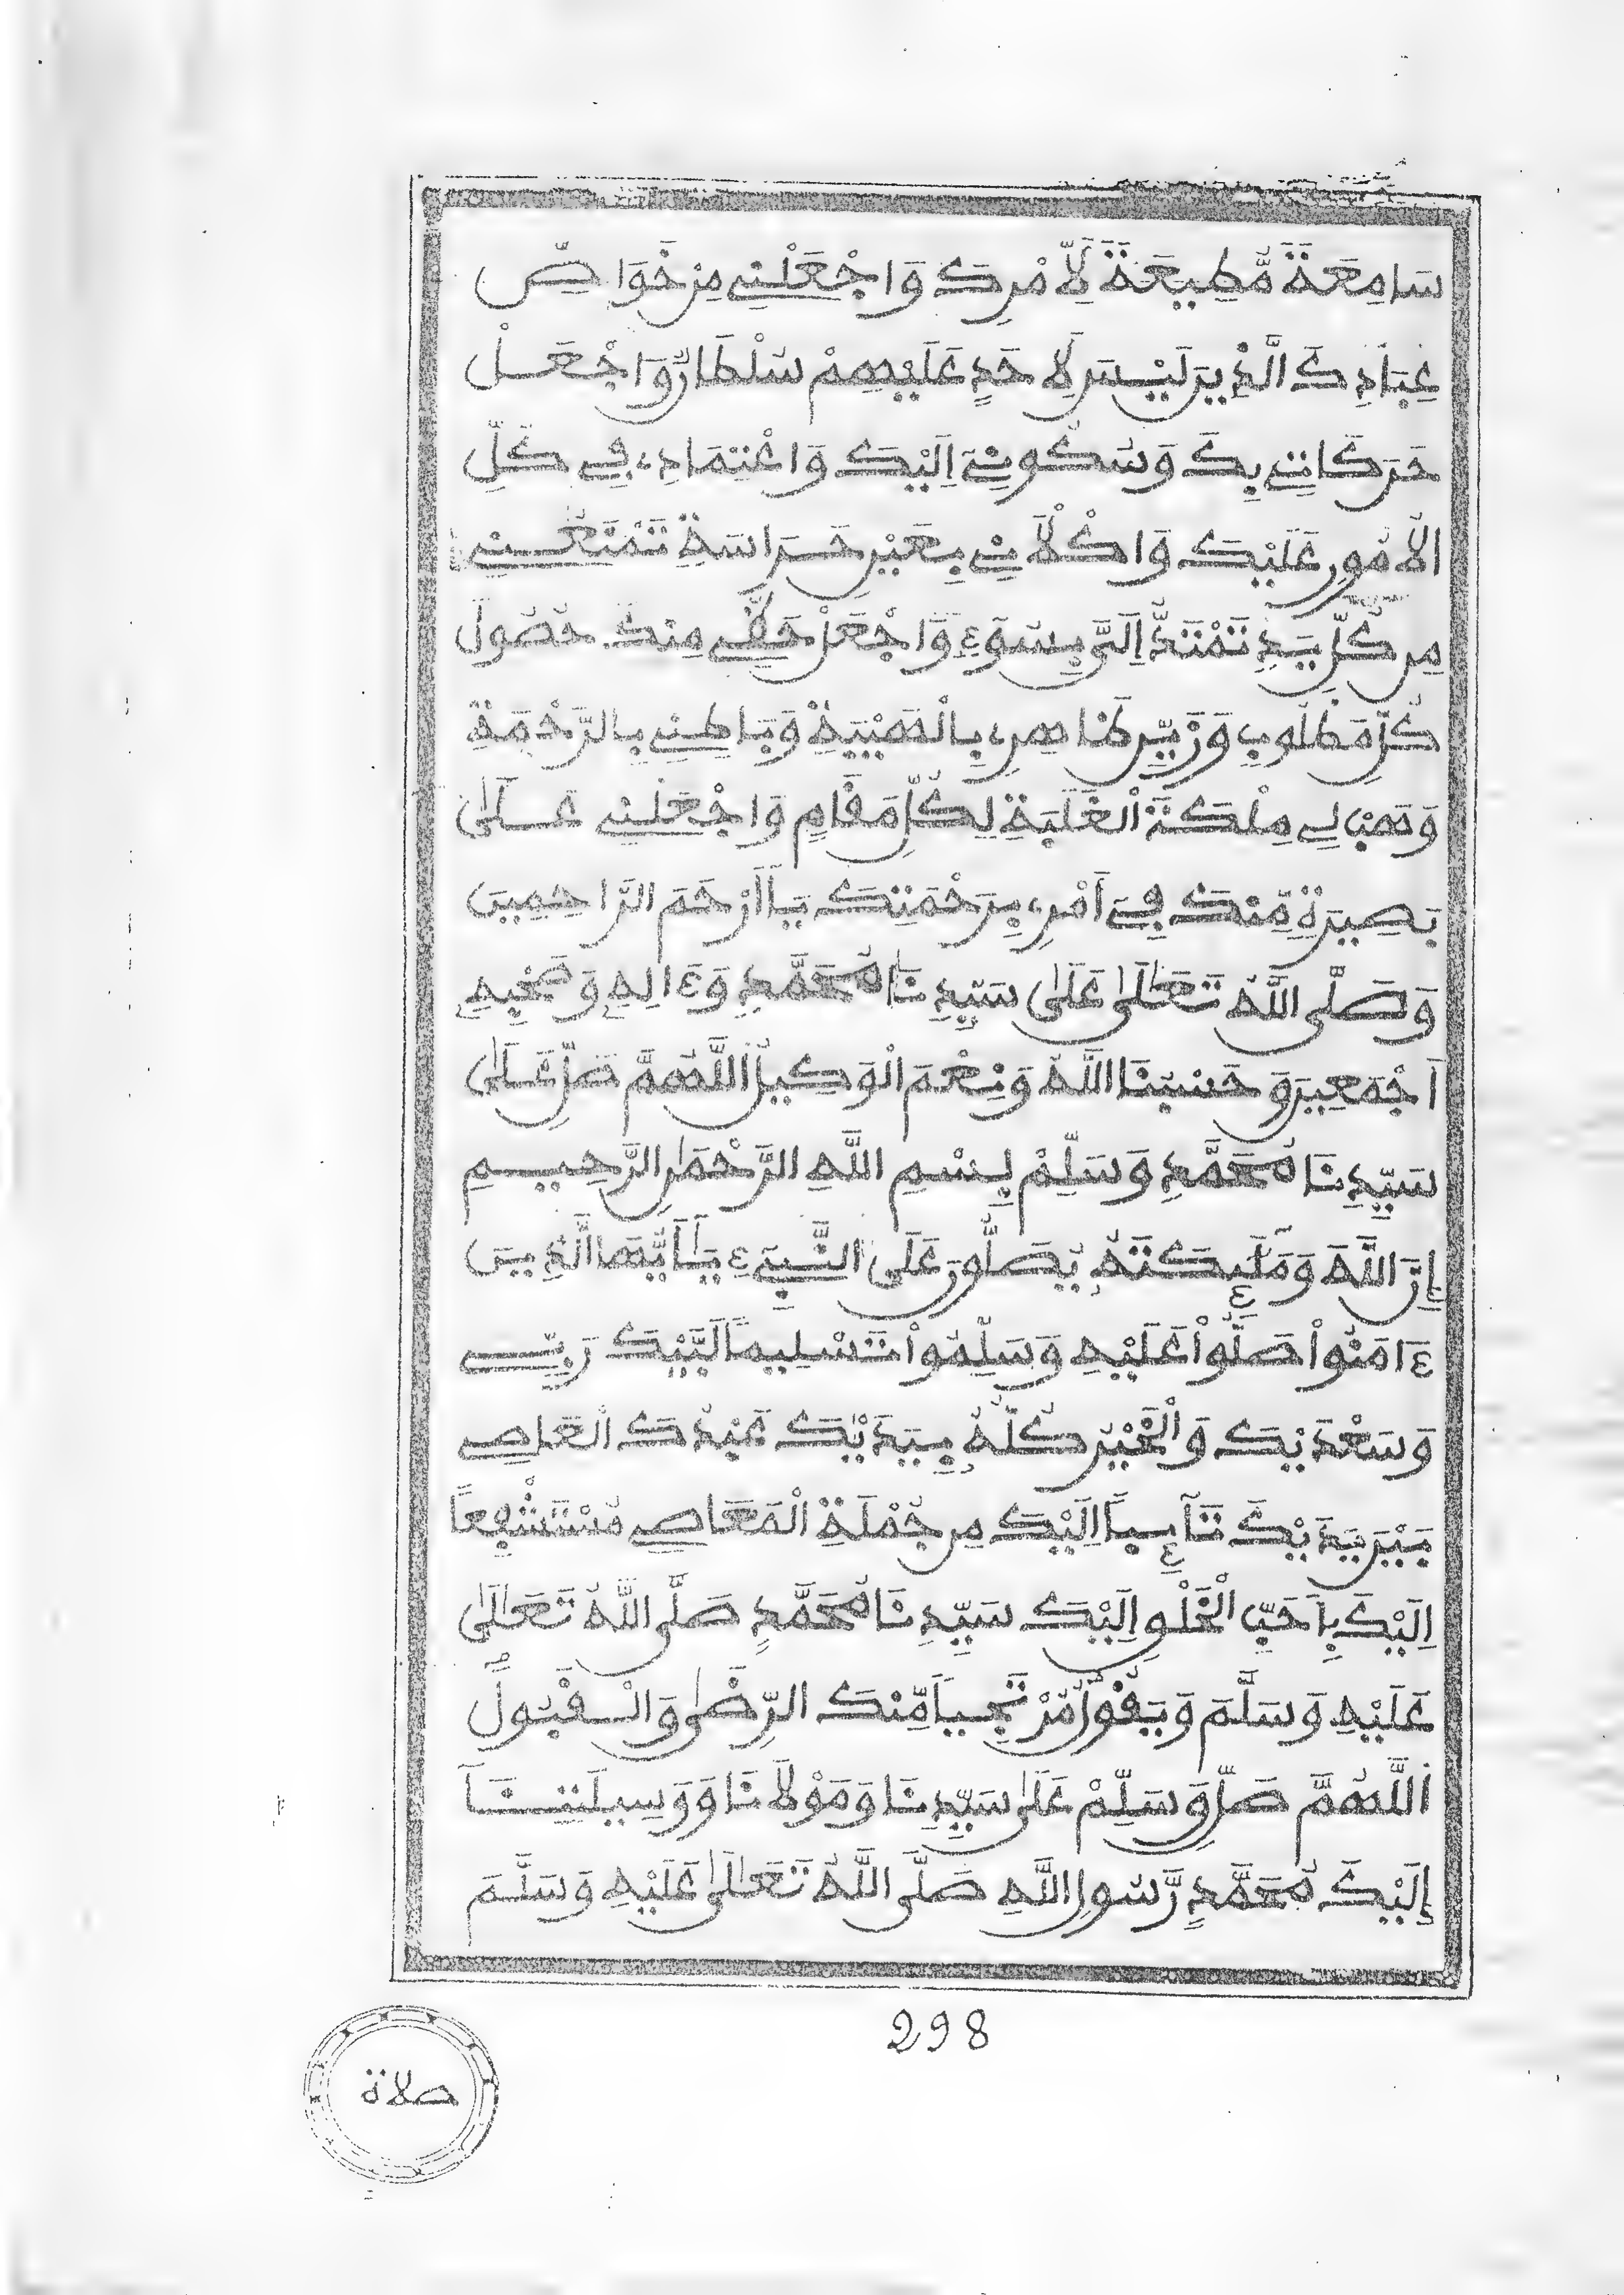 سَامِعَةً مُّطِيعَةً لِّأَمْرِكَ وَاجْعَلْنِي مِنْ خَوَاصِّ
عِبَادِكَ الَّذِينَ لَيْسَ لِأَحَدٍ عَلَيْهِمْ سُلْطَانٌ وَاجْعَلْ
حَرَكَاتِي بِكَ وَسُكُونِي إِلَيْكَ وَاعْتِمَادِي فِي كُلِّ
الْأُمُورِ عَلَيْكَ وَاكْلَأْنِي بِعَيْنِ حِرَاسَةٍ تَمْنَعُنِي
مِن كُلِّ يَدٍ تَمْتَدُّ إِلَيَّ بِسُوءٍ وَاجْعَلْ حَظِّي مِنْكَ حُصُولَ
كُلِّ مَطْلُوبٍ وَزَيِّنْ ظَاهِرِي بِالْهَيْبَةِ وَبَاطِنِي بِالرَّحْمَةِ
وَهَبْ لِي مِلْكَةَ الْغَلَبَةِ لِكُلِّ مَقَامٍ وَاجْعَلْنِي عَلَىٰ
بَصِيرَةٍ مِّنْكَ فِي أَمْرِي بِرَحْمَتِكَ يَا أَرْحَمَ الرَّاحِمِينَ
وَصَلَّى اللَّهُ تَعَالَىٰ عَلَىٰ سَيِّدِنَا مُحَمَّدٍ وَءَالِهِ وَصَحْبِهِ
أَجْمَعِينَ وَحَسْبُنَا اللَّهُ وَنِعْمَ الْوَكِيلُ اللَّهُمَّ صَلِّ عَلَىٰ
سَيِّدِنَا مُحَمَّدٍ وَسَلِّمْ بِسْمِ اللَّهِ الرَّحْمَٰنِ الرَّحِيمِ
إِنَّ اللَّهَ وَمَلَٰئِكَتَهُ يُصَلُّونَ عَلَى النَّبِيءِ يَٰأَيُّهَا الَّذِينَ
ءَامَنُواْ صَلُّواْ عَلَيْهِ وَسَلِّمُواْ تَسْلِيماً لَبَّيْكَ رَبِّي
وَسَعْدَيْكَ وَالْخَيْرُ كُلُّهُ بِيَدَيْكَ عُبَيْدُكَ الْعَاصِي
بَيْنَ يَدَيْكَ تَآئِباً إِلَيْكَ مِن جُمْلَةِ الْمَعَاصِي مُسْتَشْفِعاً
إِلَيْكَ بِأَحَبِّ الْخَلْقِ إِلَيْكَ سَيِّدِنَا مُحَمَّدٍ صَلَّى اللَّهُ تَعَالَىٰ
عَلَيْهِ وَسَلَّمَ وَيَقُولُ مُرْتَجِياً مِّنْكَ الرِّضَىٰ وَالْقَبُولَ
اللَّهُمَّ صَلِّ وَسَلِّمْ عَلَىٰ سَيِّدِنَا وَمَوْلَانَا وَوَسِيلَتِنَآ
إِلَيْكَ مُحَمَّدٍ رَّسُولِ اللَّهِ صَلَّى اللَّهُ تَعَالَىٰ عَلَيْهِ وَسَلَّمَ
298
صلاة